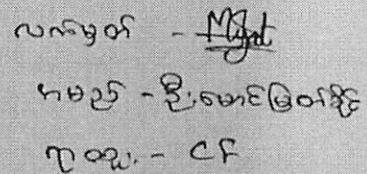 လက်မှတ် -
အမည် - ဦးမောင်မြတ်ခိုင်
ရာထူး - CF